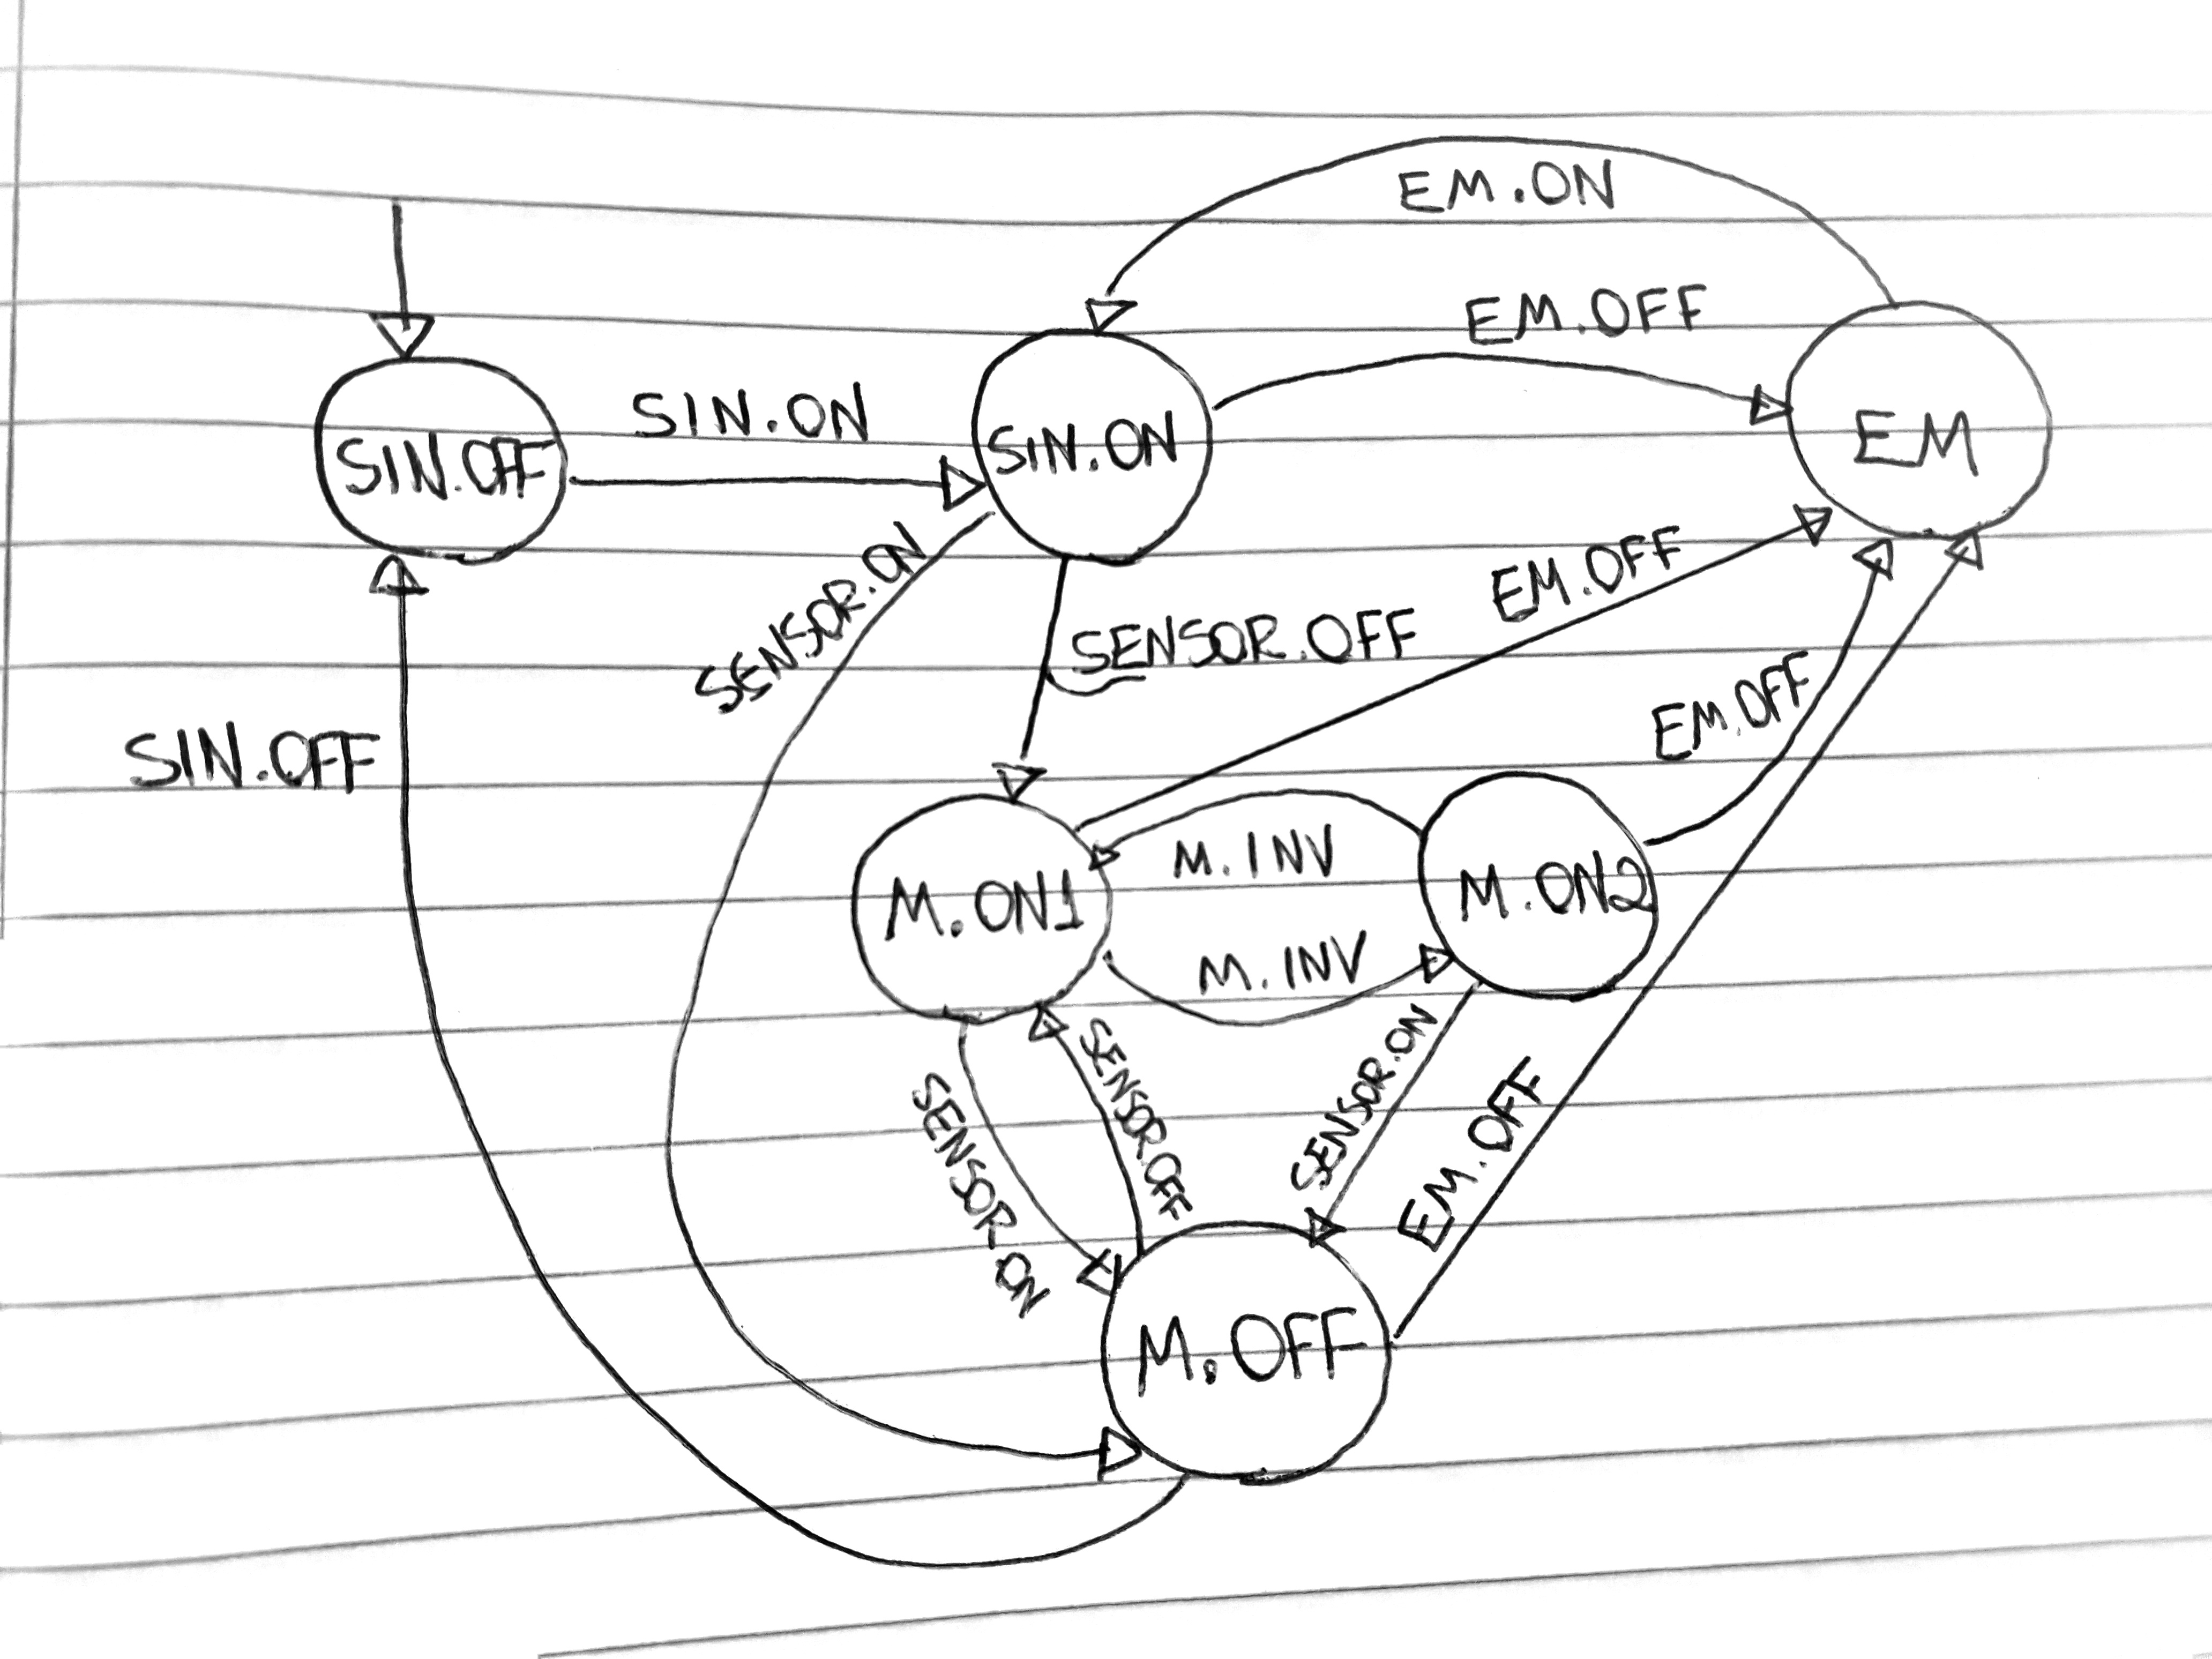 EM.ON
EM.OFF
SIN.ON
SIN.OFF
SIN.ON
EM
SENSOR.ON
EM.OFF
SENSOR.OFF
SIN.OFF
EM.OFF
M.INV
M.ON1
M.ON2
M.INV
SENSOR.ON
SENSOR.OFF
SENSOR.ON
EM.OFF
M.OFF